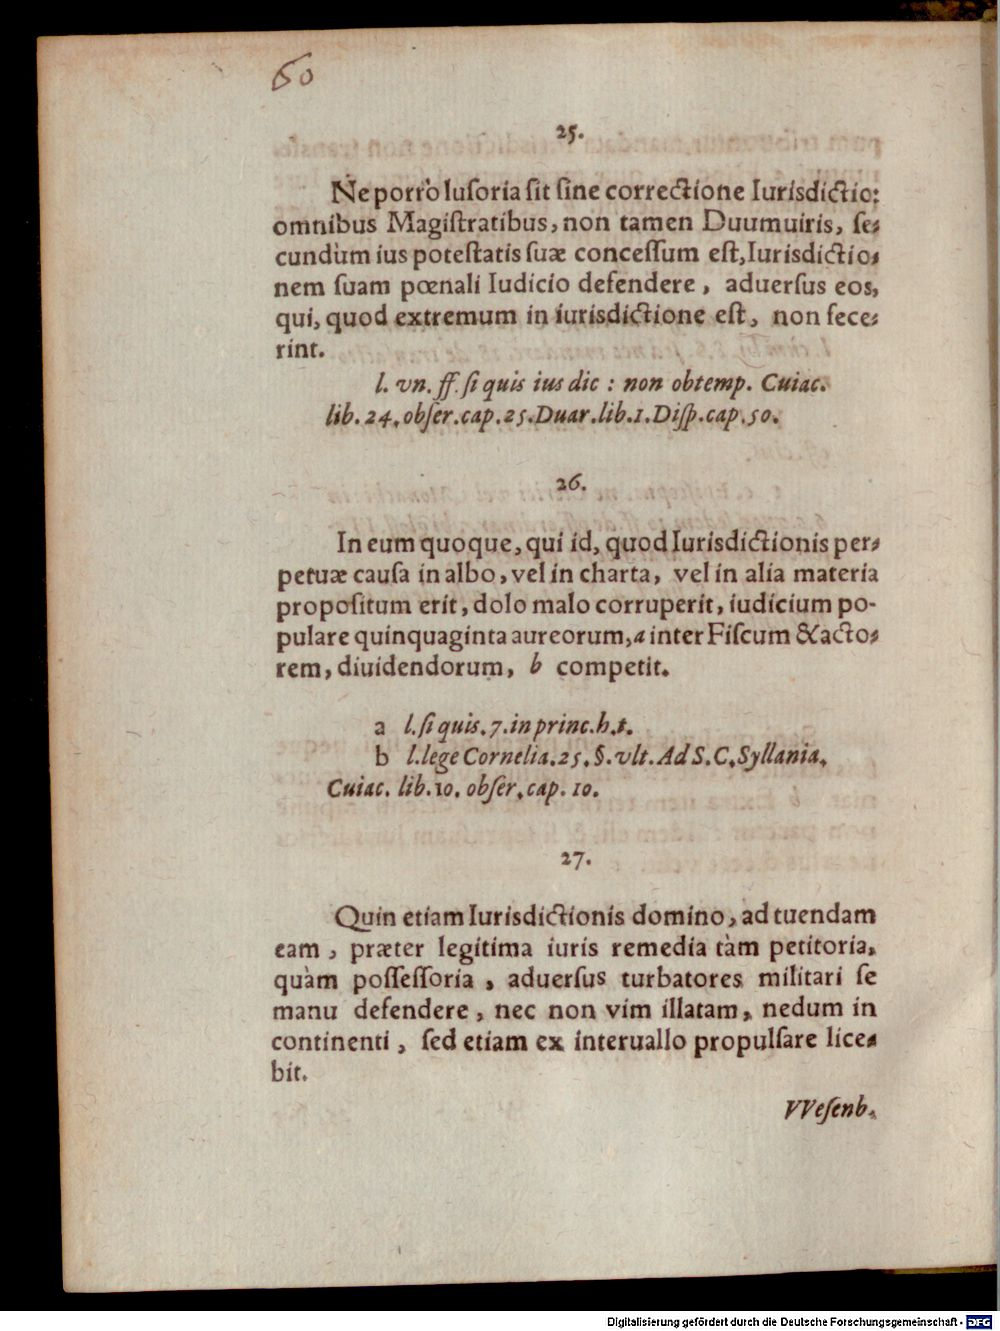 60
25.
Ne porrò luſoria ſit ſine correctione Iurisdictio:
omnibus Magiſtratibus, non tamen Duumuiris, ſe-
cundùm ius poteſtatis ſuæ conceſſum eſt, Iurisdictio-
nem ſuam pœnali Iudicio defendere, aduerſus eos,
qui, quod extremum in iurisdictione eſt, non fece-
rint.
l. vn. ff. ſi quis ius dic : non obtemp. Cuiac.
lib. 24. obſer. cap. 25. Duar. lib. 1. Diſp. cap. 50.
26.
In eum quoque, qui id, quod Iurisdictionis per-
petuæ cauſa in albo, vel in charta, vel in alia materia
propoſitum erit, dolo malo corruperit, iudicium po-
pulare quinquaginta aureorum, a inter Fiſcum & acto-
rem, diuidendorum, b competit.
a l. ſi quis. 7. in princ. h. t.
b l. lege Cornelia. 25. §. vlt. Ad S. C. Syllania.
Cuiac. lib. 10. obſer. cap. 10.
27.
Quin etiam Iurisdictionis domino, ad tuendam
eam, præter legitima iuris remedia tàm petitoria,
quàm poſſeſſoria, aduerſus turbatores militari ſe
manu defendere, nec non vim illatam, nedum in
continenti, ſed etiam ex interuallo propulſare lice-
bit.
VVeſenb.
Digitalisierung gefördert durch die Deutsche Forschungsgemeinschaft - DFG